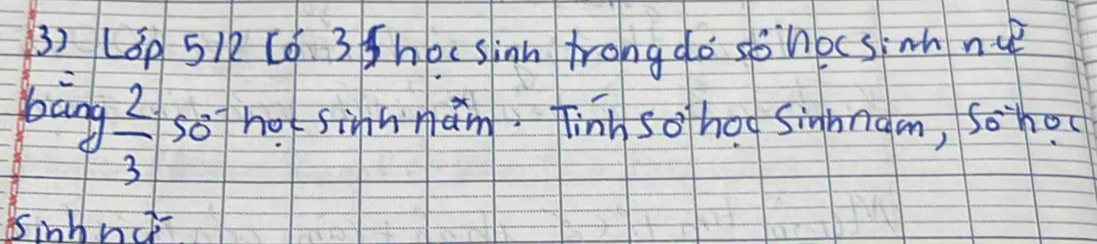 3) Lớp 5/2 có 35 học sinh trong đó số học sinh nữ
bằng 2/3 số học sinh nam. Tính số học sinh nam, số học
sinh nữ